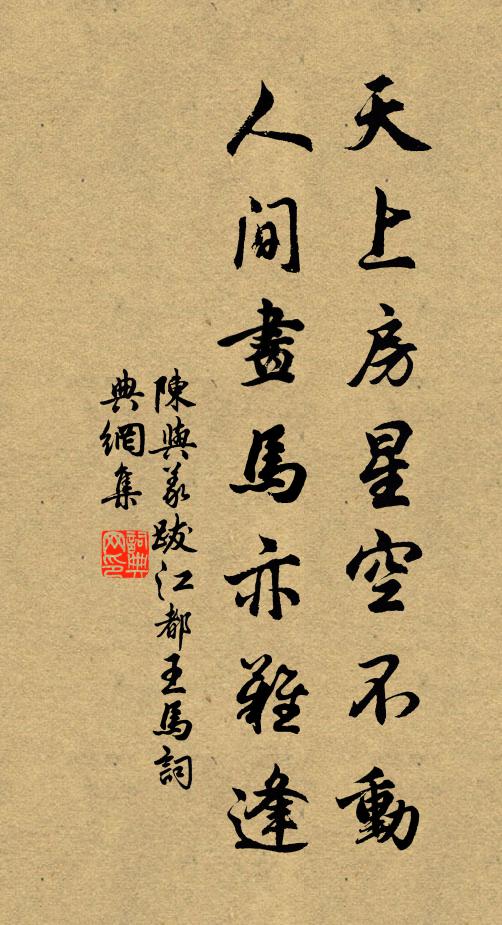 天上房星空不動
人间畫馬亦難逢
陳與義跋江都王馬詞
典網集
詞典
网印